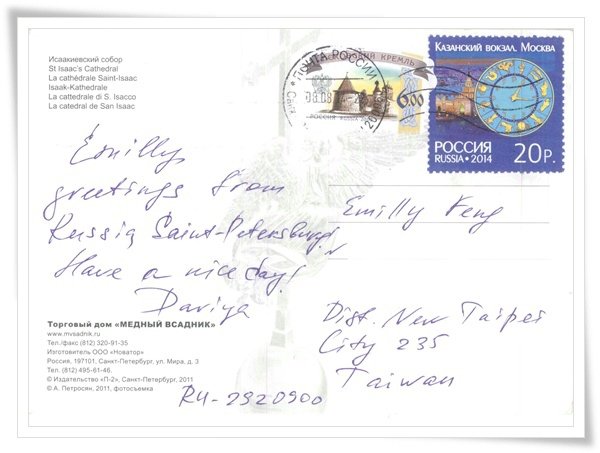 Исаакиевский собор
St Isaac's Cathedral
La cathédrale Saint-Isaac
Isaak-Kathedrale
La cattedrale di S. Isacco
La catedral de San Isaac
ПОЧТА РОССИИ
КРЕМЛЬ
6.00
РОССИЯ
КАЗАНСКИЙ ВОКЗАЛ. МОСКВА
РОССИЯ
RUSSIA • 2014
20 Р.
Emilly
greetings from
Russia Saint-Petersburg!
Have a nice day!
Dariya
Emilly Feng
Dist. New Taipei
City 235
Taiwan
Торговый дом «МЕДНЫЙ ВСАДНИК»
www.mvsadnik.ru
Тел./факс (812) 320-91-35
Изготовитель ООО «Новатор»
Россия, 197101, Санкт-Петербург, ул. Мира, д. 3
Тел. (812) 495-61-46.
© Издательство «П-2», Санкт-Петербург, 2011
© А. Петросян, 2011, фотосъемка
RU-2920900